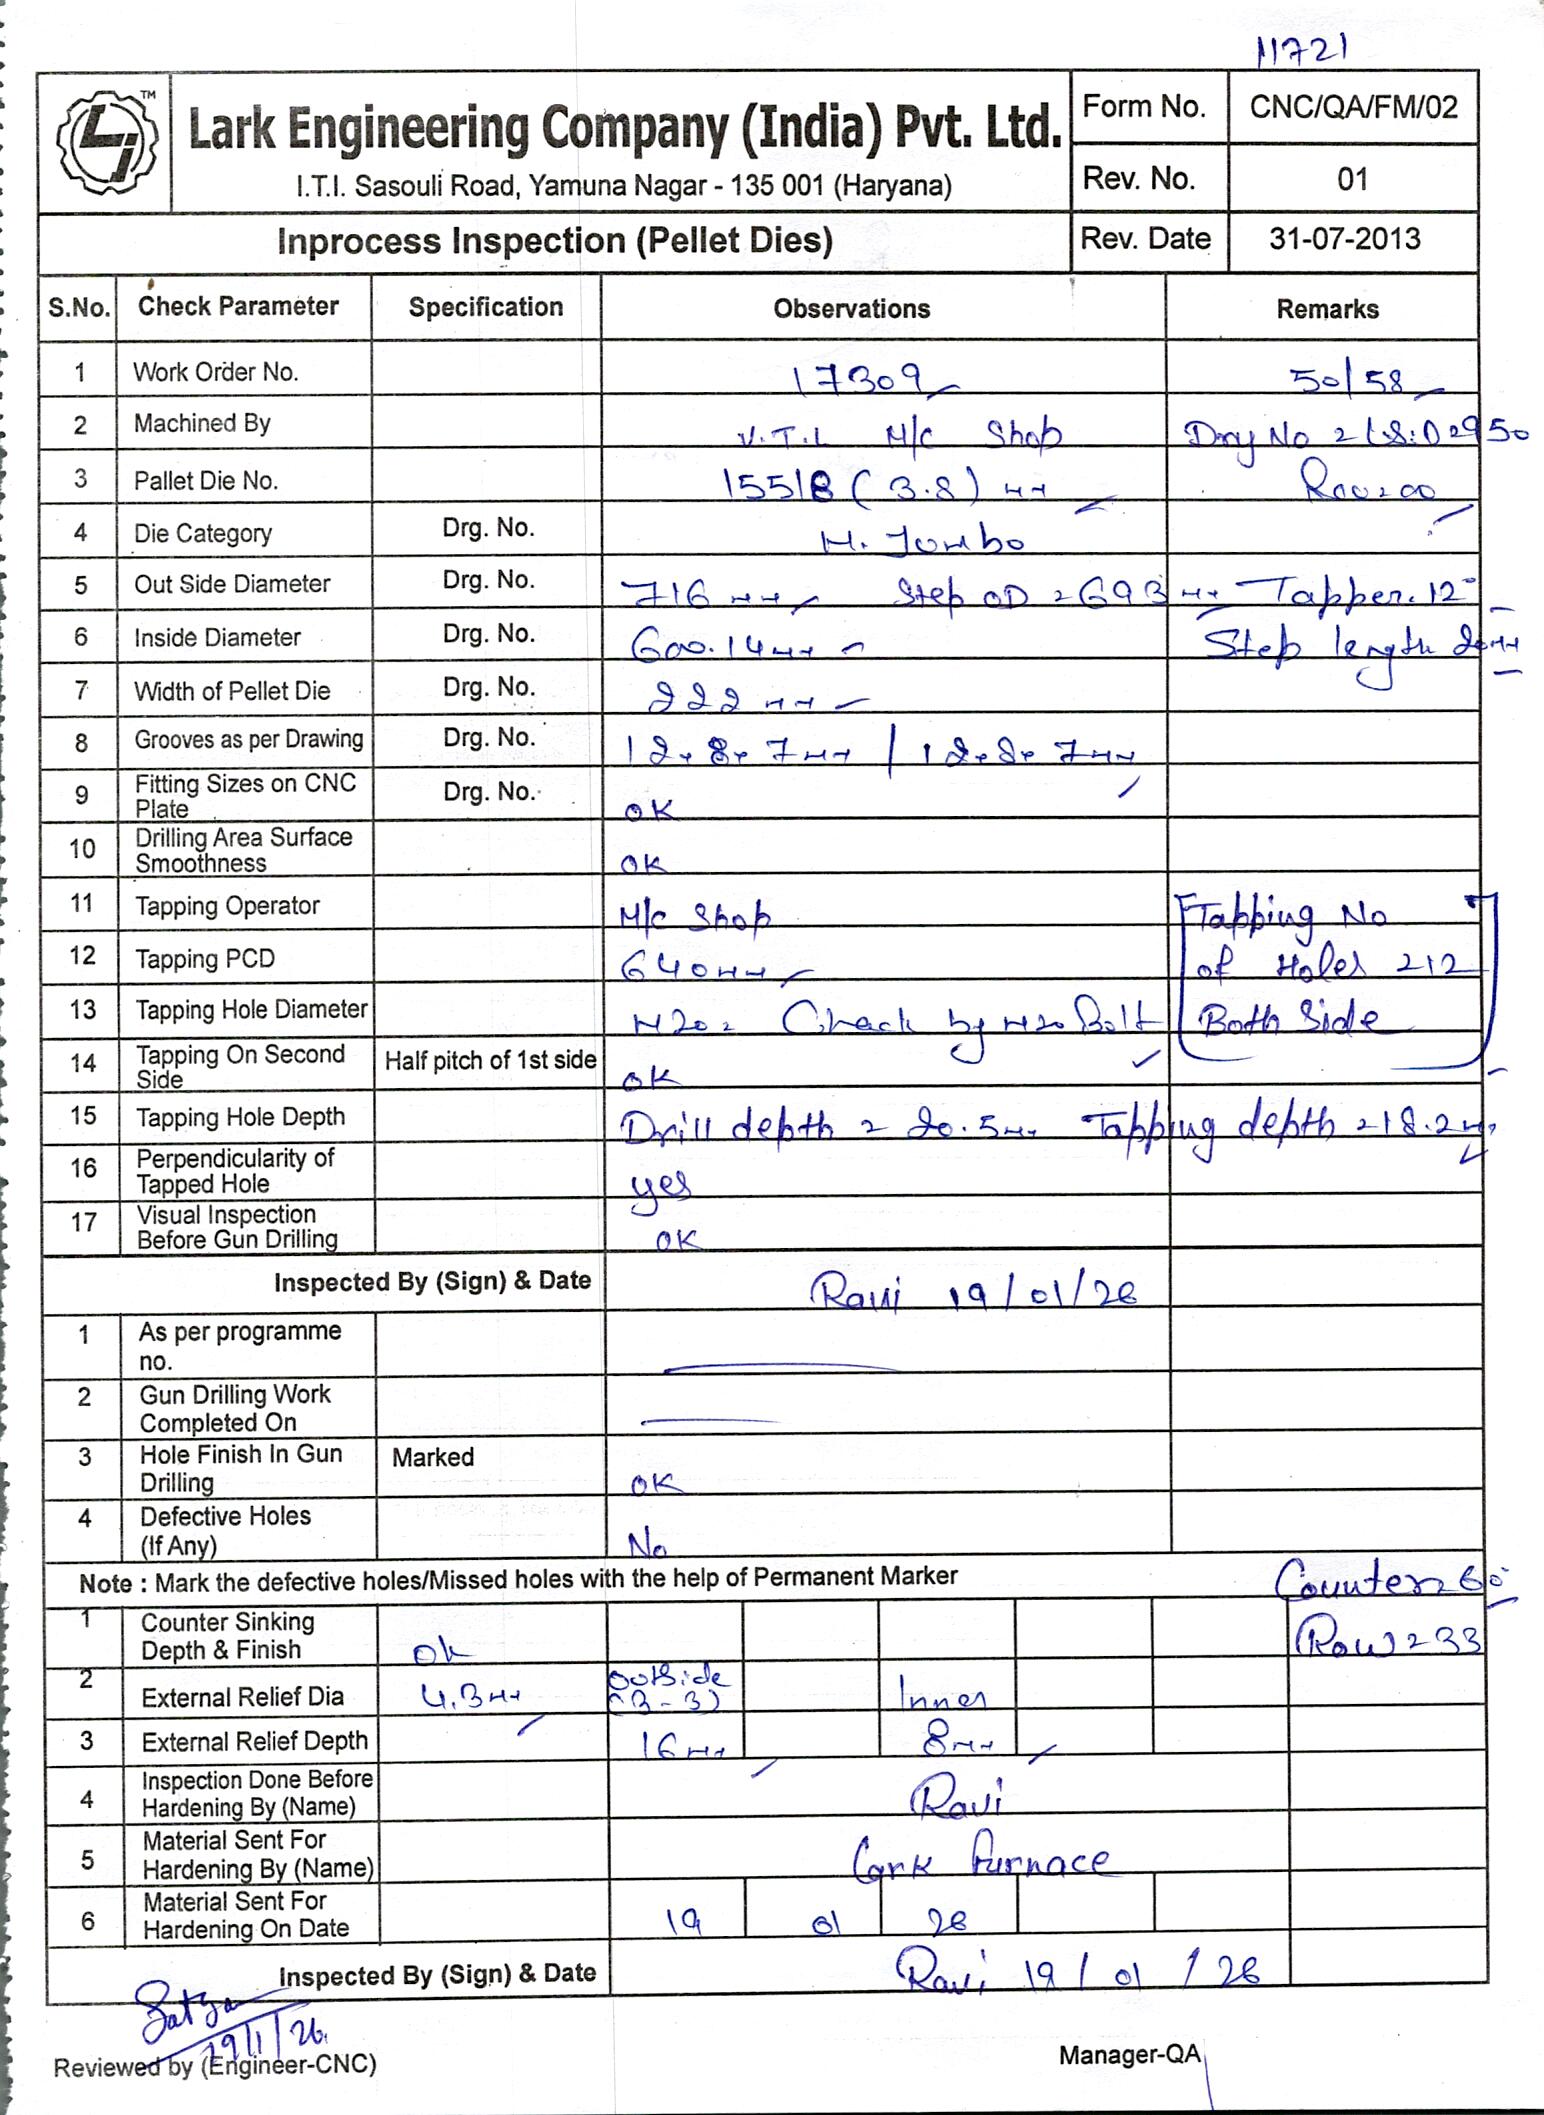 11721
TM
Lark Engineering Company (India) Pvt. Ltd.
I.T.I. Sasouli Road, Yamuna Nagar - 135 001 (Haryana)
Form No. CNC/QA/FM/02
Rev. No. 01
Inprocess Inspection (Pellet Dies) Rev. Date 31-07-2013
S.No. Check Parameter Specification Observations Remarks
1 Work Order No. 17309 50/58
2 Machined By V.T.L M/c Shop
3 Pallet Die No. 15518 (3.8) mm
4 Die Category Drg. No. H. Jumbo
5 Out Side Diameter Drg. No. 716 mm Step OD = 693 mm Tapper. 12°
6 Inside Diameter Drg. No. 600.14 mm Step length 20mm
7 Width of Pellet Die Drg. No. 222 mm
8 Grooves as per Drawing Drg. No.
9 Fitting Sizes on CNC Plate Drg. No. OK
10 Drilling Area Surface Smoothness OK
11 Tapping Operator M/c Shop Tapping No
12 Tapping PCD 640mm of Holes = 12
13 Tapping Hole Diameter M20 = Check by M20 Bolt Both Side
14 Tapping On Second Side Half pitch of 1st side OK
15 Tapping Hole Depth Drill depth = 20.5mm Tapping depth = 18.2mm
16 Perpendicularity of Tapped Hole yes
17 Visual Inspection Before Gun Drilling OK
Inspected By (Sign) & Date Ravi 19/01/26
1 As per programme no.
2 Gun Drilling Work Completed On
3 Hole Finish In Gun Drilling Marked OK
4 Defective Holes (If Any) No
Note : Mark the defective holes/Missed holes with the help of Permanent Marker Counter = 60°
1 Counter Sinking Depth & Finish Ok Row = 33
2 External Relief Dia 4.3mm Outside (3-3) Inner
3 External Relief Depth 16mm 8mm
4 Inspection Done Before Hardening By (Name) Ravi
5 Material Sent For Hardening By (Name) Lark Furnace
6 Material Sent For Hardening On Date 19 01 26
Inspected By (Sign) & Date Ravi 19/01/26
Satya
29/1/26
Reviewed by (Engineer-CNC) Manager-QA